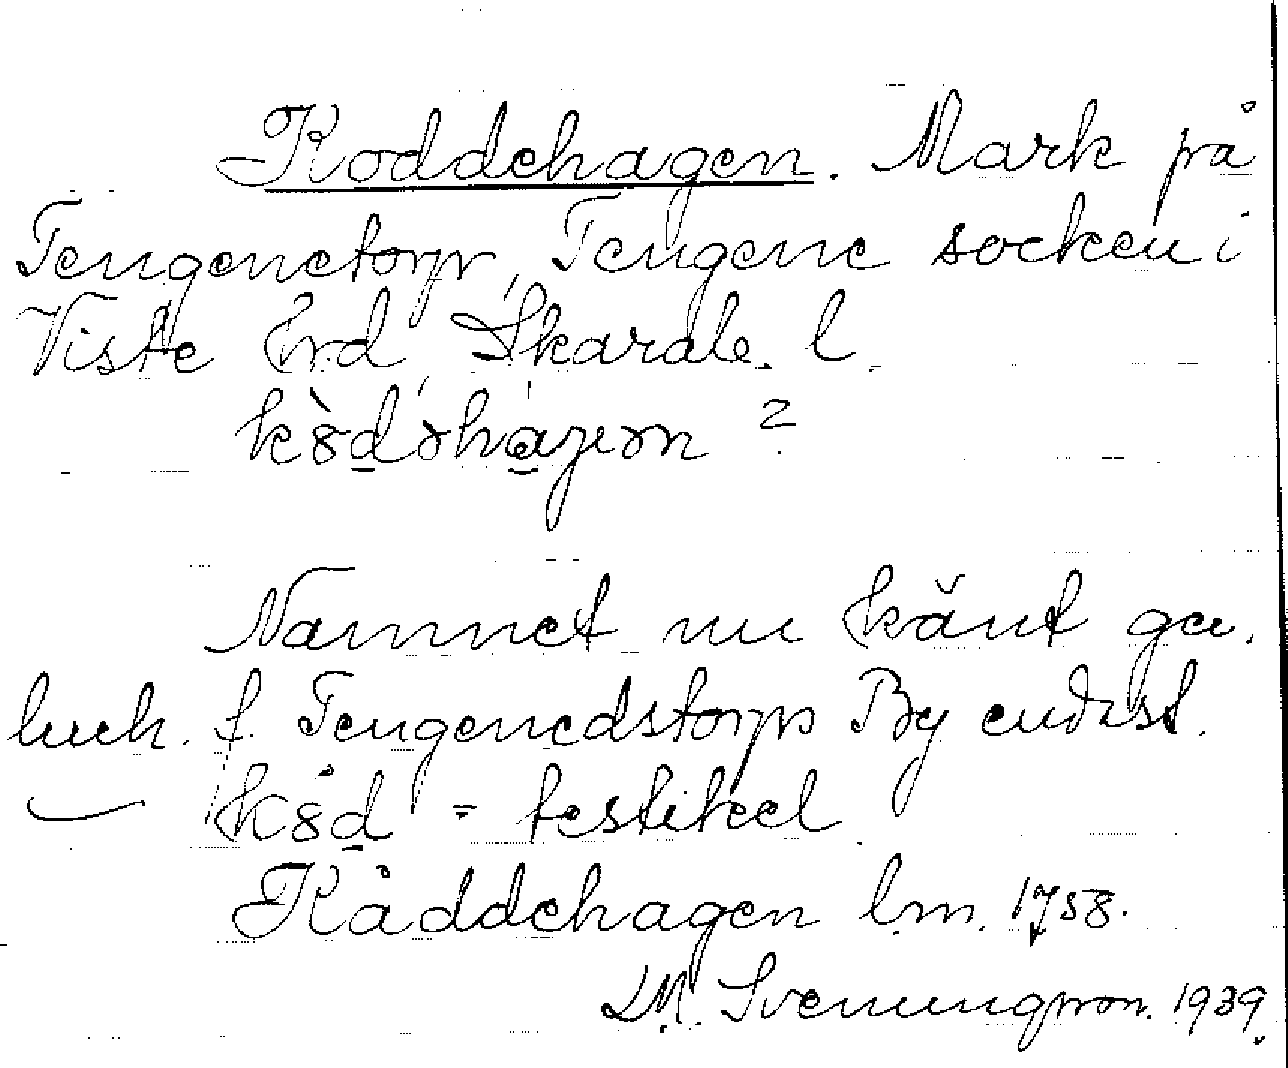 Koddehagen. Mark på
Tengenetorp, Tengene socken i
Viste hrd, Skarab. l.
Namnet nu känt ge.
f. Tengenedstorps By endast.
= testikel
Kåddehagen lm. 1758.
LM. Svenungsson. 1939.